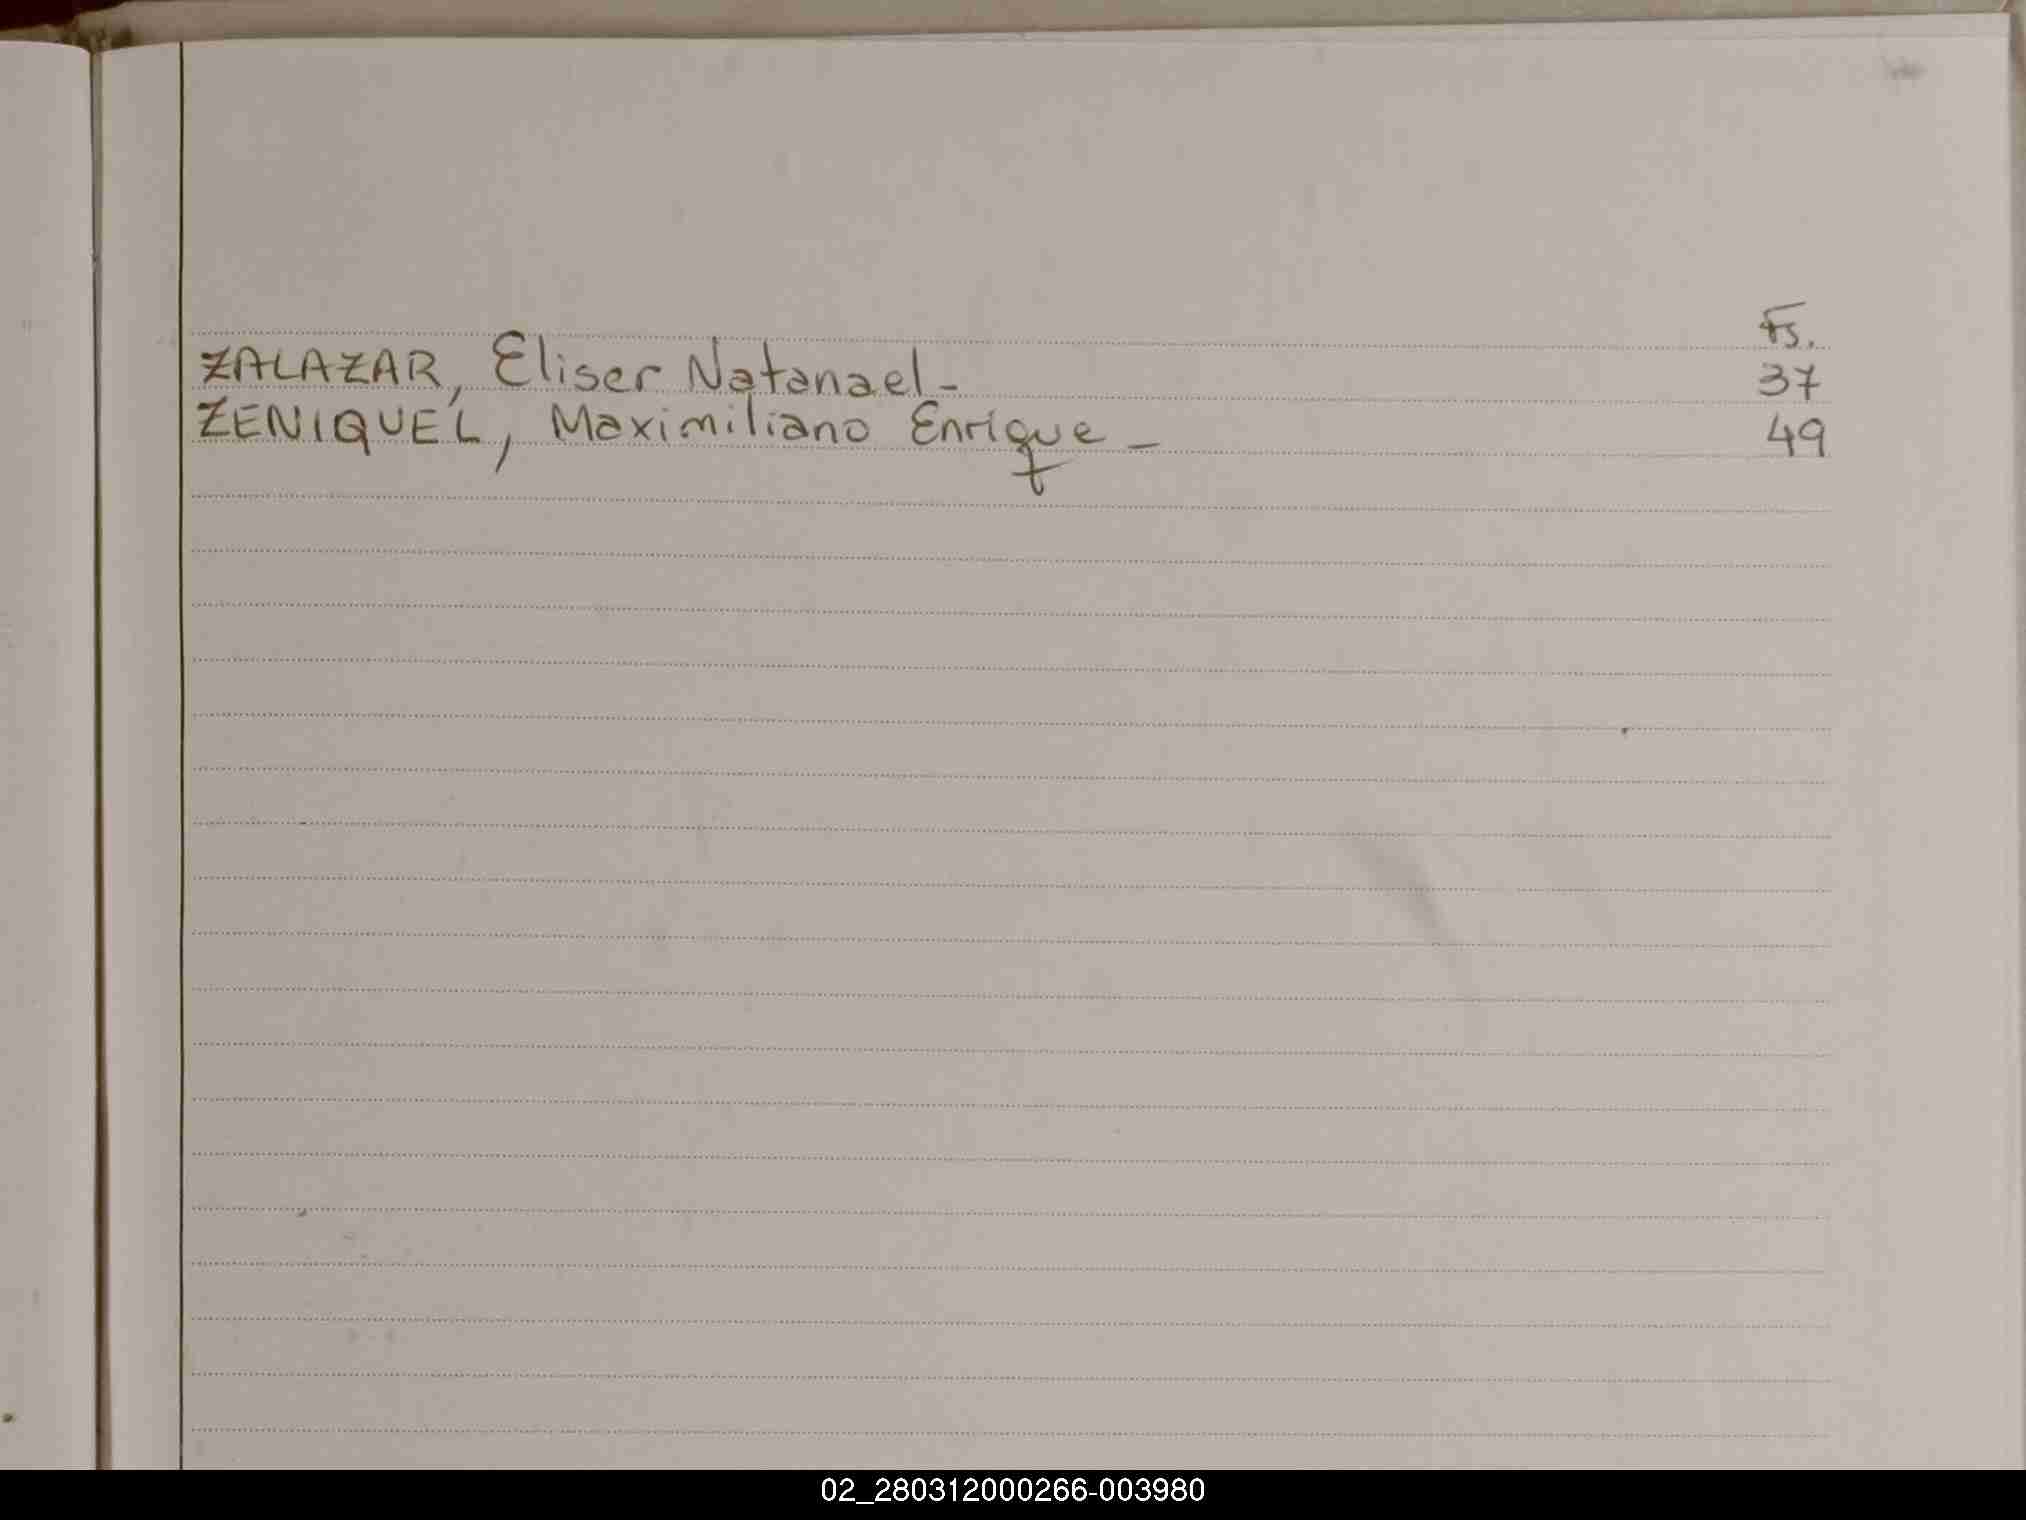 Fs.
ZALAZAR, Eliser Natanael - 37
ZENIQUEL, Maximiliano Enrique - 49
02_280312000266-003980